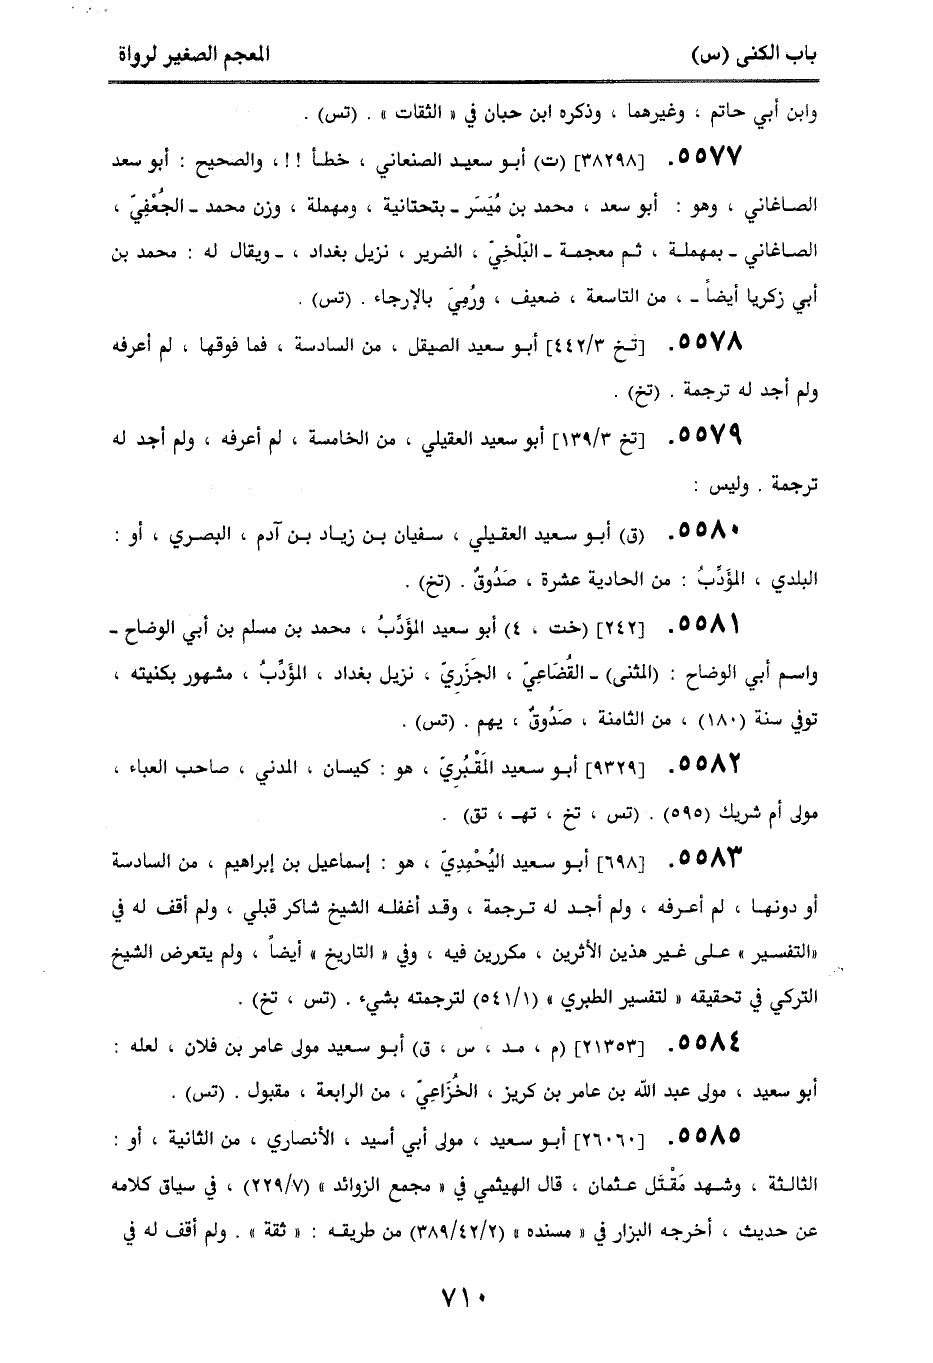 باب الكنى (س)
المعجم الصغير لرواة
وابن أبي حاتم ، وغيرهما ، وذكره ابن حبان في « الثقات » . (تس) .
٥٥٧٧. [٣٨٢٩٨] (ت) أبو سعيد الصنعاني ، خطأ !! ، والصحيح : أبو سعد
الصاغاني ، وهو : أبو سعد ، محمد بن مُيَسَر ـ بتحتانية ، ومهملة ، وزن محمد ـ الجُعْفِيّ ،
الصاغاني ـ بمهملة ، ثم معجمة ـ البَلْخِيّ ، الضرير ، نزيل بغداد ، ـ ويقال له : محمد بن
أبي زكريا أيضاً ـ ، من التاسعة ، ضعيف ، ورُمِيَ بالإرجاء . (تس) .
٥٥٧٨. [تخ ٤٤٢/٣] أبو سعيد الصيقل ، من السادسة ، فما فوقها ، لم أعرفه
ولم أجد له ترجمة . (تخ) .
٥٥٧٩. [تخ ١٣٩/٣] أبو سعيد العقيلي ، من الخامسة ، لم أعرفه ، ولم أجد له
ترجمة . وليس :
٥٥٨٠. (ق) أبو سعيد العقيلي ، سفيان بن زياد بن آدم ، البصري ، أو :
البلدي ، المؤَدِّبُ : من الحادية عشرة ، صَدُوقٌ . (تخ) .
٥٥٨١. [٢٤٢] (خت ، ٤) أبو سعيد المؤَدِّبُ ، محمد بن مسلم بن أبي الوضاح ـ
واسم أبي الوضاح : (المثنى) ـ القُضَاعِيّ ، الجَزَرِيّ ، نزيل بغداد ، المؤَدِّبُ ، مشهور بكنيته ،
توفي سنة (١٨٠) ، من الثامنة ، صَدُوقٌ ، يهم . (تس) .
٥٥٨٢. [٩٣٢٩] أبو سعيد المَقْبُرِيّ ، هو : كيسان ، المدني ، صاحب العباء ،
مولى أم شريك (٥٩٥) . (تس ، تخ ، تهـ ، تق) .
٥٥٨٣. [٦٩٨] أبو سعيد اليُحْمِدِيّ ، هو : إسماعيل بن إبراهيم ، من السادسة
أو دونها ، لم أعرفه ، ولم أجد له ترجمة ، وقد أغفله الشيخ شاكر قبلي ، ولم أقف له في
«التفسير » على غير هذين الأثرين ، مكررين فيه ، وفي « التاريخ » أيضاً ، ولم يتعرض الشيخ
التركي في تحقيقه « لتفسير الطبري » (٥٤١/١) لترجمته بشيء . (تس ، تخ) .
٥٥٨٤. [٢١٣٥٣] (م ، مد ، س ، ق) أبو سعيد مولى عامر بن فلان ، لعله :
أبو سعيد ، مولى عبد الله بن عامر بن كريز ، الخُزَاعِيّ ، من الرابعة ، مقبول . (تس) .
٥٥٨٥. [٢٦٠٦٠] أبو سعيد ، مولى أبي أسيد ، الأنصاري ، من الثانية ، أو :
الثالثة ، وشهد مَقْتَل عثمان ، قال الهيثمي في « مجمع الزوائد » (٢٢٩/٧) ، في سياق كلامه
عن حديث ، أخرجه البزار في « مسنده » (٣٨٩/٤٢/٢) من طريقه : « ثقة » . ولم أقف له في
٧١٠